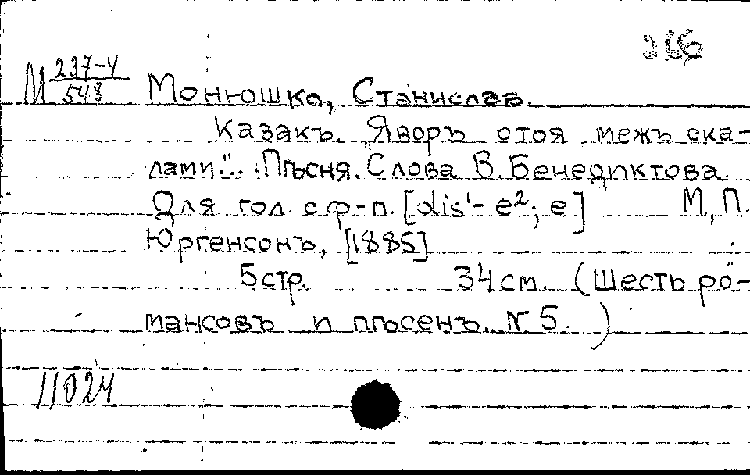 М 237-4/543
Монюшко, Станислав.
Казакъ. Яворъ стоя межъ ска-
лами".. Пѣсня. Слова В. Бенедиктова
Для гол. с ф-п. [dis¹- e²; e] М, П.
Юргенсонъ, [1885]
5 стр. 34 см. (Шесть ро-
мансовъ и пѣсенъ. № 5.)
11024